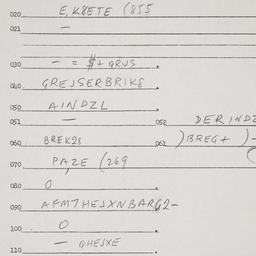 020 E,K8ETE (855
021 —
030 — = $+ QRUS .
040 GREJSERBRIK8
050 AINDZL .
051 — 052 DERINDZ
060 BREK28 . 061 )BREG+ )-
070 PAZE (269
080 0 .
090 AFM7HEJXNBARG2-
100 0 .
110 — QHEJXE .